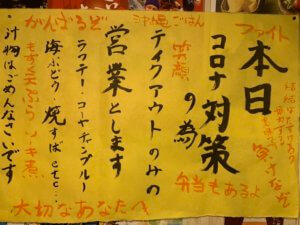 本日
コロナ対策
の為
テイクアウトのみの
営業とします
ラフテー・ゴーヤチャンプルー
海ぶどう・焼すばetc…
汁物はごめんなさいです
がんばるど
沖縄ごはん
ファイト
笑顔
弁当もあるよ
大切なあなたへ
負けるな